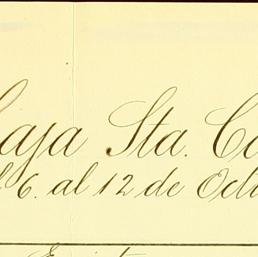 Caja Sta. Ca
l 6. al 12 de Octu